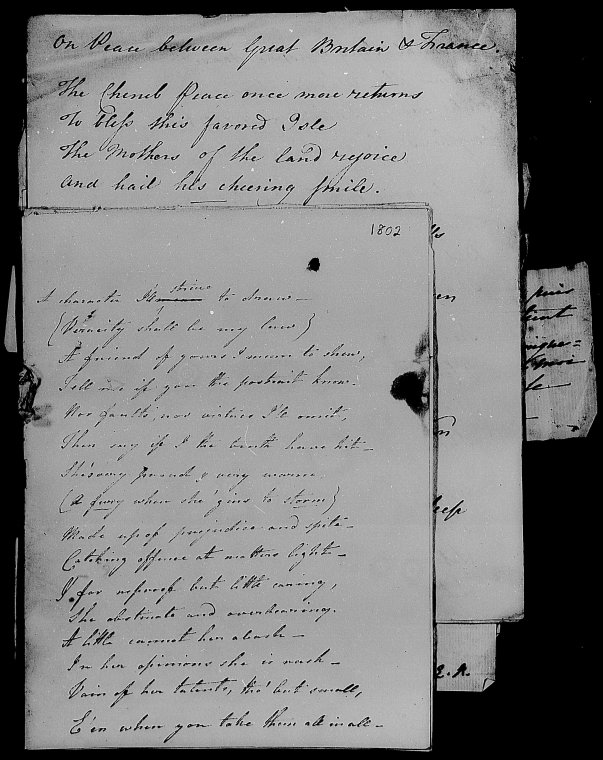 On Peace between Great Britain & France.
The Cherub Peace once more returns
To bless this favored Isle
The Mothers of the land rejoice
And hail his cheering smile.
1802
A character I'll strive to draw—
(Veracity shall be my law)
A friend of yours I mean to shew,
Tell me if you the portrait know.
Nor faults, nor virtues I'll omit,
Then say if I the truth have hit—
She's very proud & very warm
(A fury when she 'gins to storm)
Made up of prejudice and spite—
Catching offence at matters light—
For reproof but little caring,
She obstinate and overbearing.
A little cannot her abash—
In her opinions she is rash—
Vain of her talents, tho' but small,
E'en when you take them all in all—